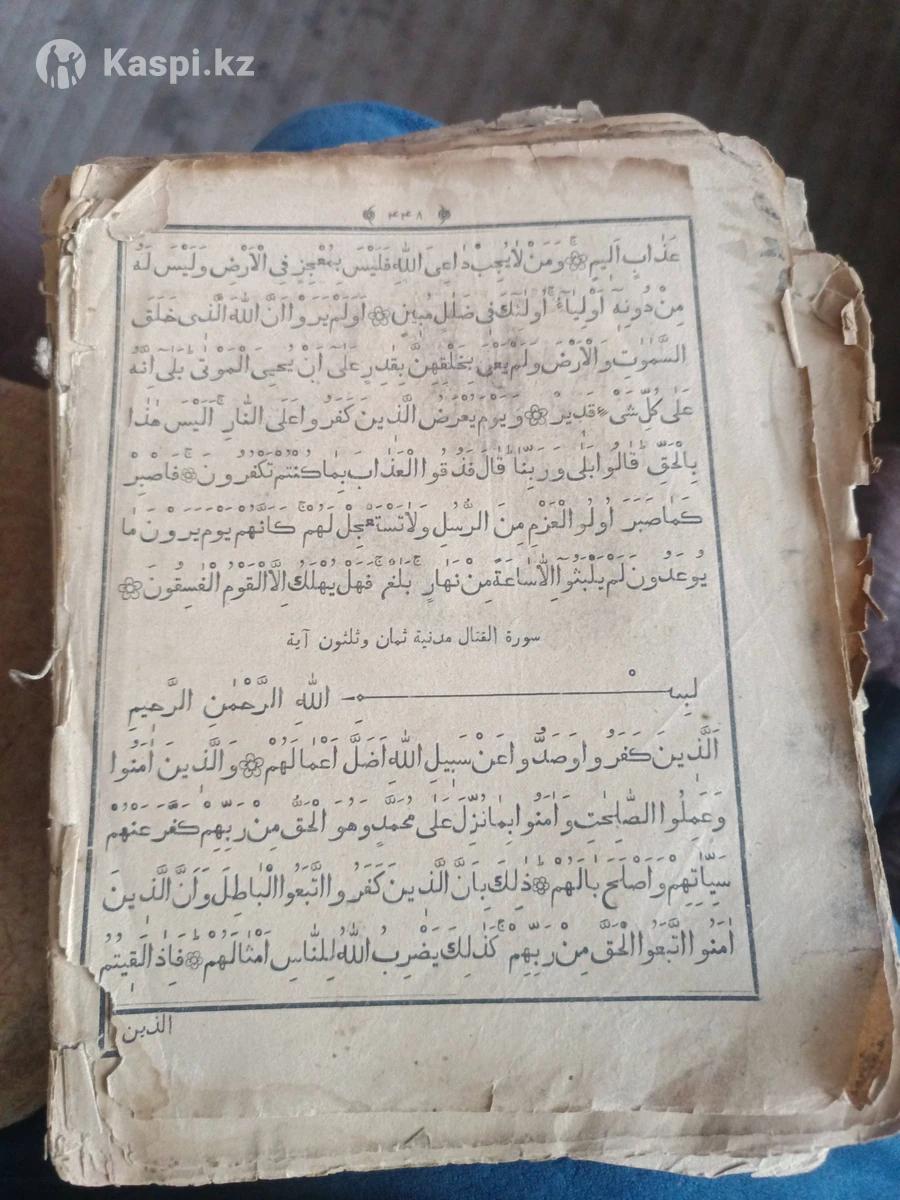 Kaspi.kz
۴۴۸
عَذَابٍ اَلِيمٍ ۞ وَمَنْ لَا يُجِبْ دَاعِيَ اللّٰهِ فَلَيْسَ بِمُعْجِزٍ فِي الْاَرْضِ وَلَيْسَ لَهُ
مِنْ دُونِهٓ اَوْلِيَآءُ ۚ اُولٰئِكَ فِي ضَلَالٍ مُبِينٍ ۞ اَوَلَمْ يَرَوْا اَنَّ اللّٰهَ الَّذِي خَلَقَ
السَّمٰوٰتِ وَالْاَرْضَ وَلَمْ يَعْيَ بِخَلْقِهِنَّ بِقَادِرٍ عَلٰى اَنْ يُحْيِيَ الْمَوْتٰى ۜ بَلٰى اِنَّهُ
عَلٰى كُلِّ شَيْءٍ قَدِيرٌ ۞ وَيَوْمَ يُعْرَضُ الَّذِينَ كَفَرُوا عَلَى النَّارِ ۚ اَلَيْسَ هٰذَا
بِالْحَقِّ ۜ قَالُوا بَلٰى وَرَبِّنَا ۜ قَالَ فَذُوقُوا الْعَذَابَ بِمَا كُنْتُمْ تَكْفُرُونَ ۞ فَاصْبِرْ
كَمَا صَبَرَ اُولُو الْعَزْمِ مِنَ الرُّسُلِ وَلَا تَسْتَعْجِلْ لَهُمْ ۚ كَاَنَّهُمْ يَوْمَ يَرَوْنَ مَا
يُوعَدُونَ لَمْ يَلْبَثُوٓا اِلَّا سَاعَةً مِنْ نَهَارٍ ۚ بَلَاغٌ ۚ فَهَلْ يُهْلَكُ اِلَّا الْقَوْمُ الْفٰسِقُونَ ۞
سورة القتال مدنية ثمان وثلثون آية
بِسْمِ اللّٰهِ الرَّحْمٰنِ الرَّحِيمِ
اَلَّذِينَ كَفَرُوا وَصَدُّوا عَنْ سَبِيلِ اللّٰهِ اَضَلَّ اَعْمَالَهُمْ ۞ وَالَّذِينَ اٰمَنُوا
وَعَمِلُوا الصَّالِحٰتِ وَاٰمَنُوا بِمَا نُزِّلَ عَلٰى مُحَمَّدٍ وَهُوَ الْحَقُّ مِنْ رَبِّهِمْ كَفَّرَ عَنْهُمْ
سَيِّاٰتِهِمْ وَاَصْلَحَ بَالَهُمْ ۞ ذٰلِكَ بِاَنَّ الَّذِينَ كَفَرُوا اتَّبَعُوا الْبَاطِلَ وَاَنَّ الَّذِينَ
اٰمَنُوا اتَّبَعُوا الْحَقَّ مِنْ رَبِّهِمْ ۚ كَذٰلِكَ يَضْرِبُ اللّٰهُ لِلنَّاسِ اَمْثَالَهُمْ ۞ فَاِذَا لَقِيتُمُ
الذين